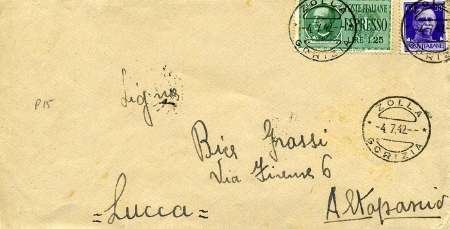 ZOLLA
4.7.42
GORIZIA
POSTE ITALIANE
ESPRESSO
LIRE 1.25
50
POSTE ITALIANE
P15
ZOLLA
-4.7.42--
GORIZIA
Bice Grassi
Via Firenze 6
=Lucca=
Altopascio